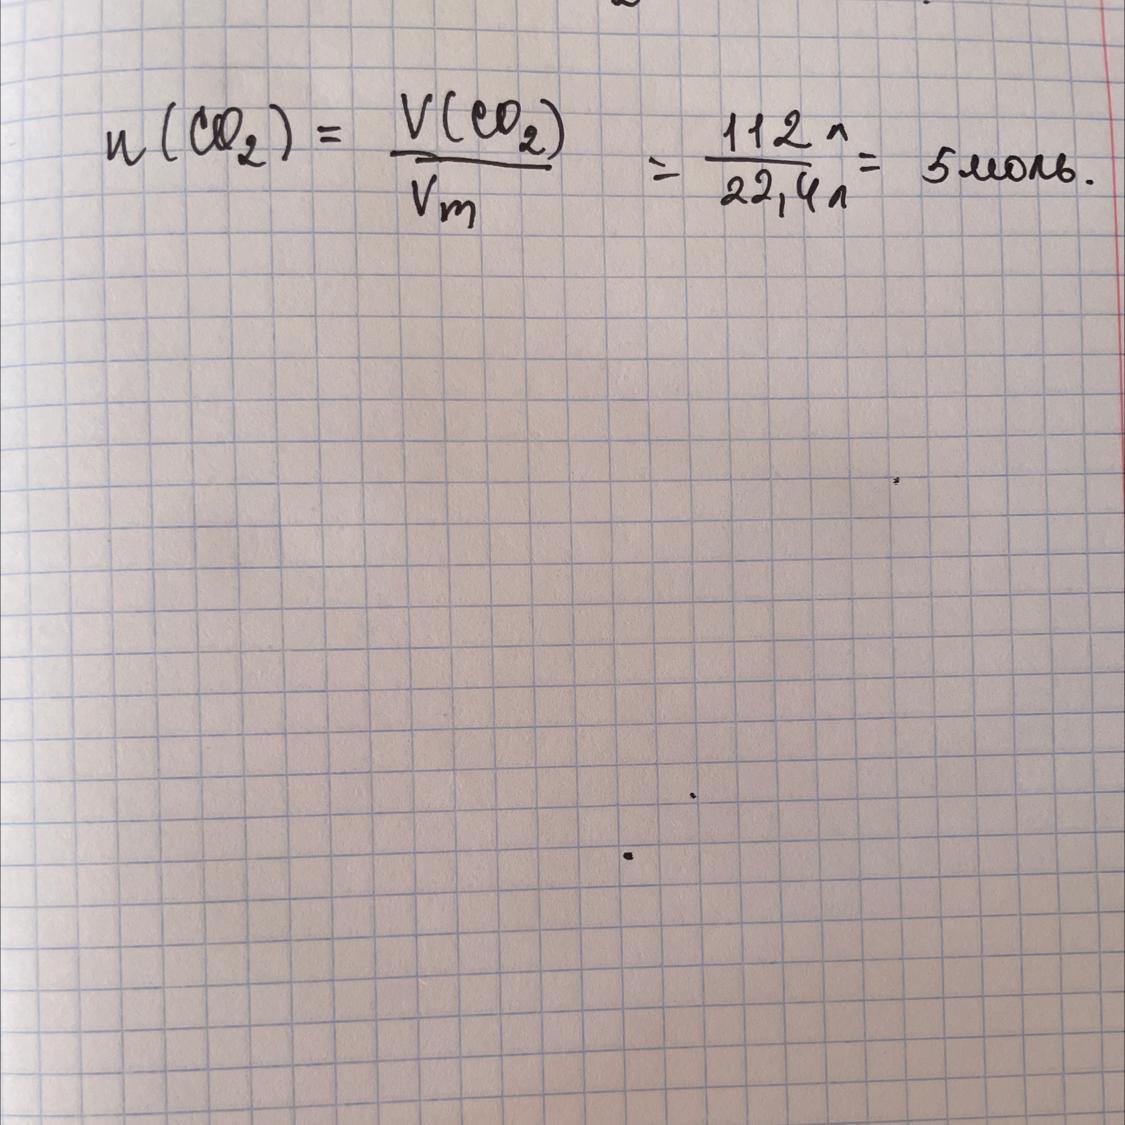 n(CO₂) = V(CO₂)/Vm = 112 л/22,4 л = 5 моль.